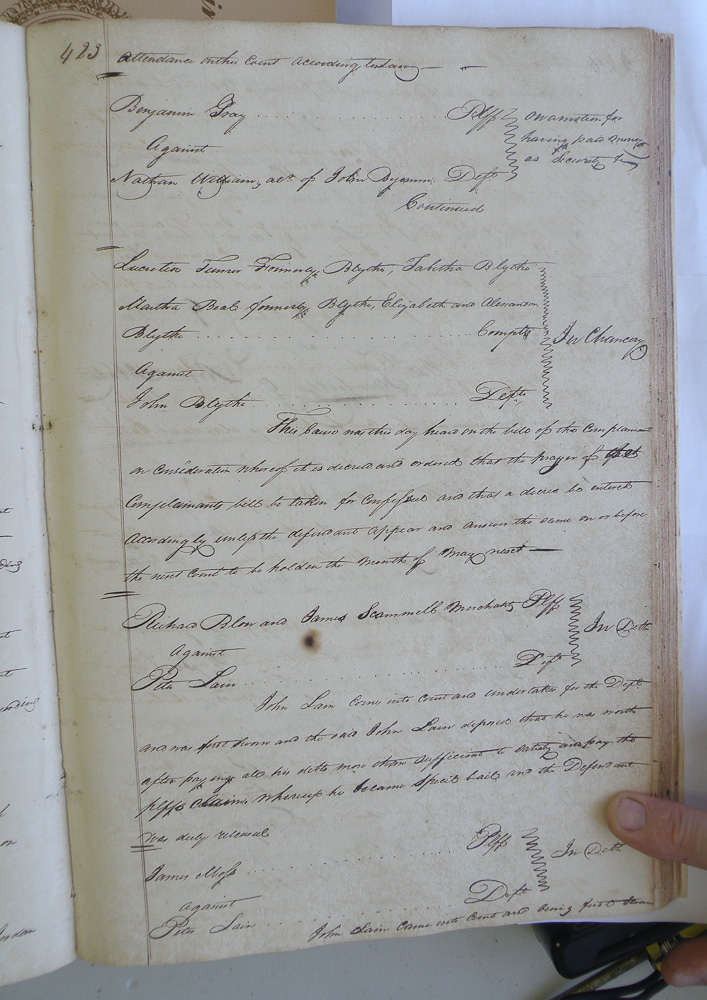 423
Attendance on this Court According to Law
Benjamin Gray Plff on a motion for
having paid money
Against as Security &c
Nathan William, adr. of John Byrum Deft
Continued
Lucretia Turner Formerly Blythe, Tabitha Blythe
Martha Beal formerly Blythe, Elizabeth and Alexander
Blythe Complts In Chancery
Against
John Blythe Deft,
This Cause was this day heard on the bill of the Complainant
on Consideration whereof it is decreed and ordered that the prayer of
Complainants bill be taken for Confessed and that a decree be entered
Accordingly unless the defendant Appear and Answer the same on or before
the next Court to be holden the Month of May next
Richard Blow and James Scammell Merchants Plff In Debt
Against
Peter Lain Deft
John Lain Came into Court and undertakes for the Deft
and was first sworn and the said John Lain deposed that he was worth
after paying all his debts more than sufficient to satisfy and pay the
plffs Claims whereupon he became Special bail and the Defendant
was duly released
James Moss Plff In Debt
against
Peter Lain Deft
John Lain Came into Court and being first sworn